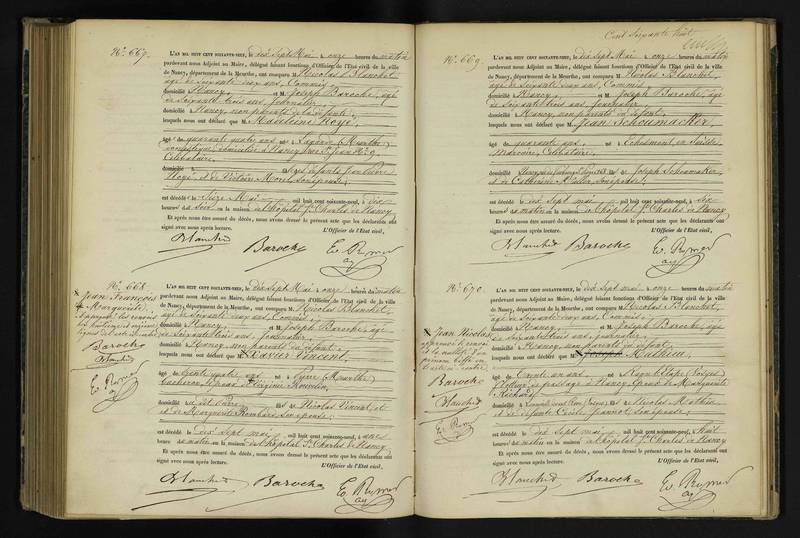 No. 667.
L'AN MIL HUIT CENT SOIXANTE-NEUF, le dix Sept Mai à onze heures du matin
pardevant nous Adjoint au Maire, délégué faisant fonctions d'Officier de l'Etat civil de la ville
de Nancy, département de la Meurthe, ont comparu M. Nicolas Blanchet,
âgé de Soixante six ans, Commis
domicilié à Nancy, et M. Joseph Baroche, âgé
de Soixante trois ans, journalier,
domicilié à Nancy, non parents de la défunte,
lesquels nous ont déclaré que Madeleine Noyé,
âgé de quarante quatre ans né à Lagarde (Meurthe)
domestique, domiciliée à Nancy, rue St Jean No 9
Célibataire,
domicilié fille de défunts Jean Pierre
Noyé, et de Victoire Morel, son épouse,
est décédé le Seize Mai mil huit cent soixante-neuf, à dix
heures du Soir en la maison de l'hôpital St Charles de Nancy
Et après nous être assuré du décès, nous avons dressé le présent acte que les déclarants ont
signé avec nous après lecture.
L'Officier de l'Etat civil,
Blanchet Baroche Ev Rymer
adj
No. 668.
Jean François
Marguerite
Baroche
Blanchet
Ev Rymer
adj
L'AN MIL HUIT CENT SOIXANTE-NEUF, le dix Sept Mai à onze heures du matin
pardevant nous Adjoint au Maire, délégué faisant fonctions d'Officier de l'Etat civil de la ville
de Nancy, département de la Meurthe, ont comparu M. Nicolas Blanchet,
âgé de Soixante six ans, Commis
domicilié à Nancy, et M. Joseph Baroche, âgé
de Soixante trois ans, journalier,
domicilié à Nancy, non parents du défunt,
lesquels nous ont déclaré que Xavier Vincent,
âgé de trente quatre ans né à Pierre (Meurthe)
époux de Virginie
domicilié au dit Pierre fils de Nicolas Vincent, et
et de Marguerite son épouse,
est décédé le dix Sept mai mil huit cent soixante-neuf, à onze
heures du matin en la maison de l'hôpital St Charles de Nancy
Et après nous être assuré du décès, nous avons dressé le présent acte que les déclarants ont
signé avec nous après lecture.
L'Officier de l'Etat civil,
Blanchet Baroche Ev Rymer
adj
Cent Soixante huit
No. 669.
L'AN MIL HUIT CENT SOIXANTE-NEUF, le dix Sept Mai à onze heures du matin
pardevant nous Adjoint au Maire, délégué faisant fonctions d'Officier de l'Etat civil de la ville
de Nancy, département de la Meurthe, ont comparu M. Nicolas Blanchet,
âgé de Soixante six ans, Commis
domicilié à Nancy, et M. Joseph Baroche, âgé
de Soixante trois ans, journalier,
domicilié à Nancy, non parents du défunt,
lesquels nous ont déclaré que Jean Schoumacker,
âgé de quarante ans, né à
Célibataire,
domicilié fils de Joseph Schoumacker
et de Catherine Müller, son épouse,
est décédé le dix sept mai mil huit cent soixante-neuf, à dix
heures du matin en la maison de l'hôpital St Charles de Nancy
Et après nous être assuré du décès, nous avons dressé le présent acte que les déclarants ont
signé avec nous après lecture.
L'Officier de l'Etat civil,
Blanchet Baroche Ev Rymer
adj
No. 670.
Jean Nicolas
Baroche
Blanchet
Ev Rymer
adj
L'AN MIL HUIT CENT SOIXANTE-NEUF, le dix Sept mai à onze heures du matin
pardevant nous Adjoint au Maire, délégué faisant fonctions d'Officier de l'Etat civil de la ville
de Nancy, département de la Meurthe, ont comparu M. Nicolas Blanchet,
âgé de Soixante six ans, Commis
domicilié à Nancy, et M. Joseph Baroche, âgé
de Soixante trois ans, journalier,
domicilié à Nancy, non parents du défunt,
lesquels nous ont déclaré que Joseph Mathieu,
âgé de trente un ans né à (Vosges)
de passage à Nancy, époux de Marguerite
Richard,
domicilié fils de Nicolas Mathieu
et de défunte Cécile Jeannot, son épouse,
est décédé le dix sept mai mil huit cent soixante-neuf, à huit
heures du matin en la maison de l'hôpital St Charles de Nancy
Et après nous être assuré du décès, nous avons dressé le présent acte que les déclarants ont
signé avec nous après lecture.
L'Officier de l'Etat civil,
Blanchet Baroche Ev Rymer
adj